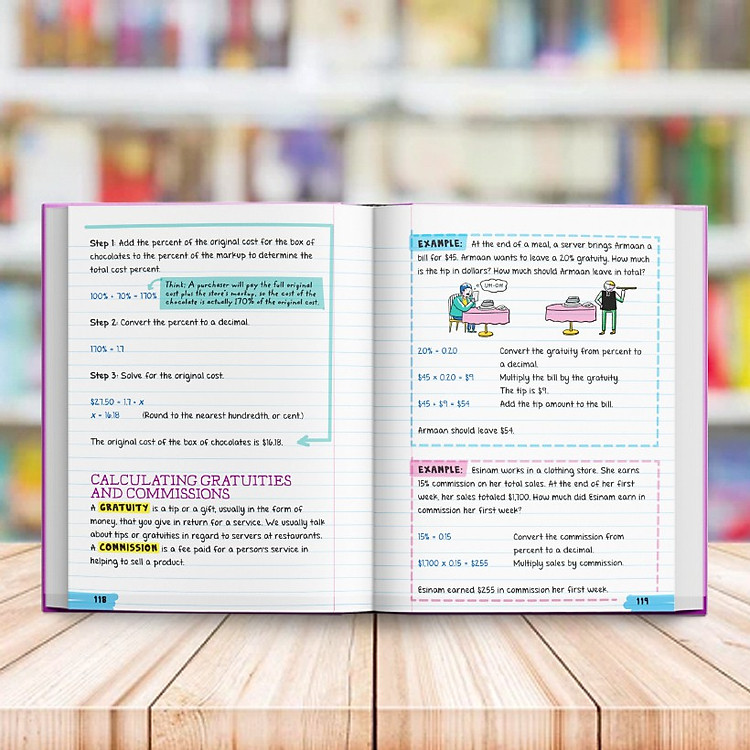 Step 1: Add the percent of the original cost for the box of
chocolates to the percent of the markup to determine the
total cost percent.
100% + 70% = 170%
Think: A purchaser will pay the full original
cost plus the store's markup, so the cost of the
chocolate is actually 170% of the original cost.
Step 2: Convert the percent to a decimal.
170% = 1.7
Step 3: Solve for the original cost.
$27.50 = 1.7 • x
x = 16.18 (Round to the nearest hundredth, or cent.)
The original cost of the box of chocolates is $16.18.
CALCULATING GRATUITIES
AND COMMISSIONS
A GRATUITY is a tip or a gift, usually in the form of
money, that you give in return for a service. We usually talk
about tips or gratuities in regard to servers at restaurants.
A COMMISSION is a fee paid for a person's service in
helping to sell a product.
118
EXAMPLE: At the end of a meal, a server brings Armaan a
bill for $45. Armaan wants to leave a 20% gratuity. How much
is the tip in dollars? How much should Armaan leave in total?
UH-OH
20% = 0.20 Convert the gratuity from percent to
a decimal.
$45 x 0.20 = $9 Multiply the bill by the gratuity.
The tip is $9.
$45 + $9 = $54 Add the tip amount to the bill.
Armaan should leave $54.
EXAMPLE: Esinam works in a clothing store. She earns
15% commission on her total sales. At the end of her first
week, her sales totaled $1,700. How much did Esinam earn in
commission her first week?
15% = 0.15 Convert the commission from
percent to a decimal.
$1,700 x 0.15 = $255 Multiply sales by commission.
Esinam earned $255 in commission her first week.
119